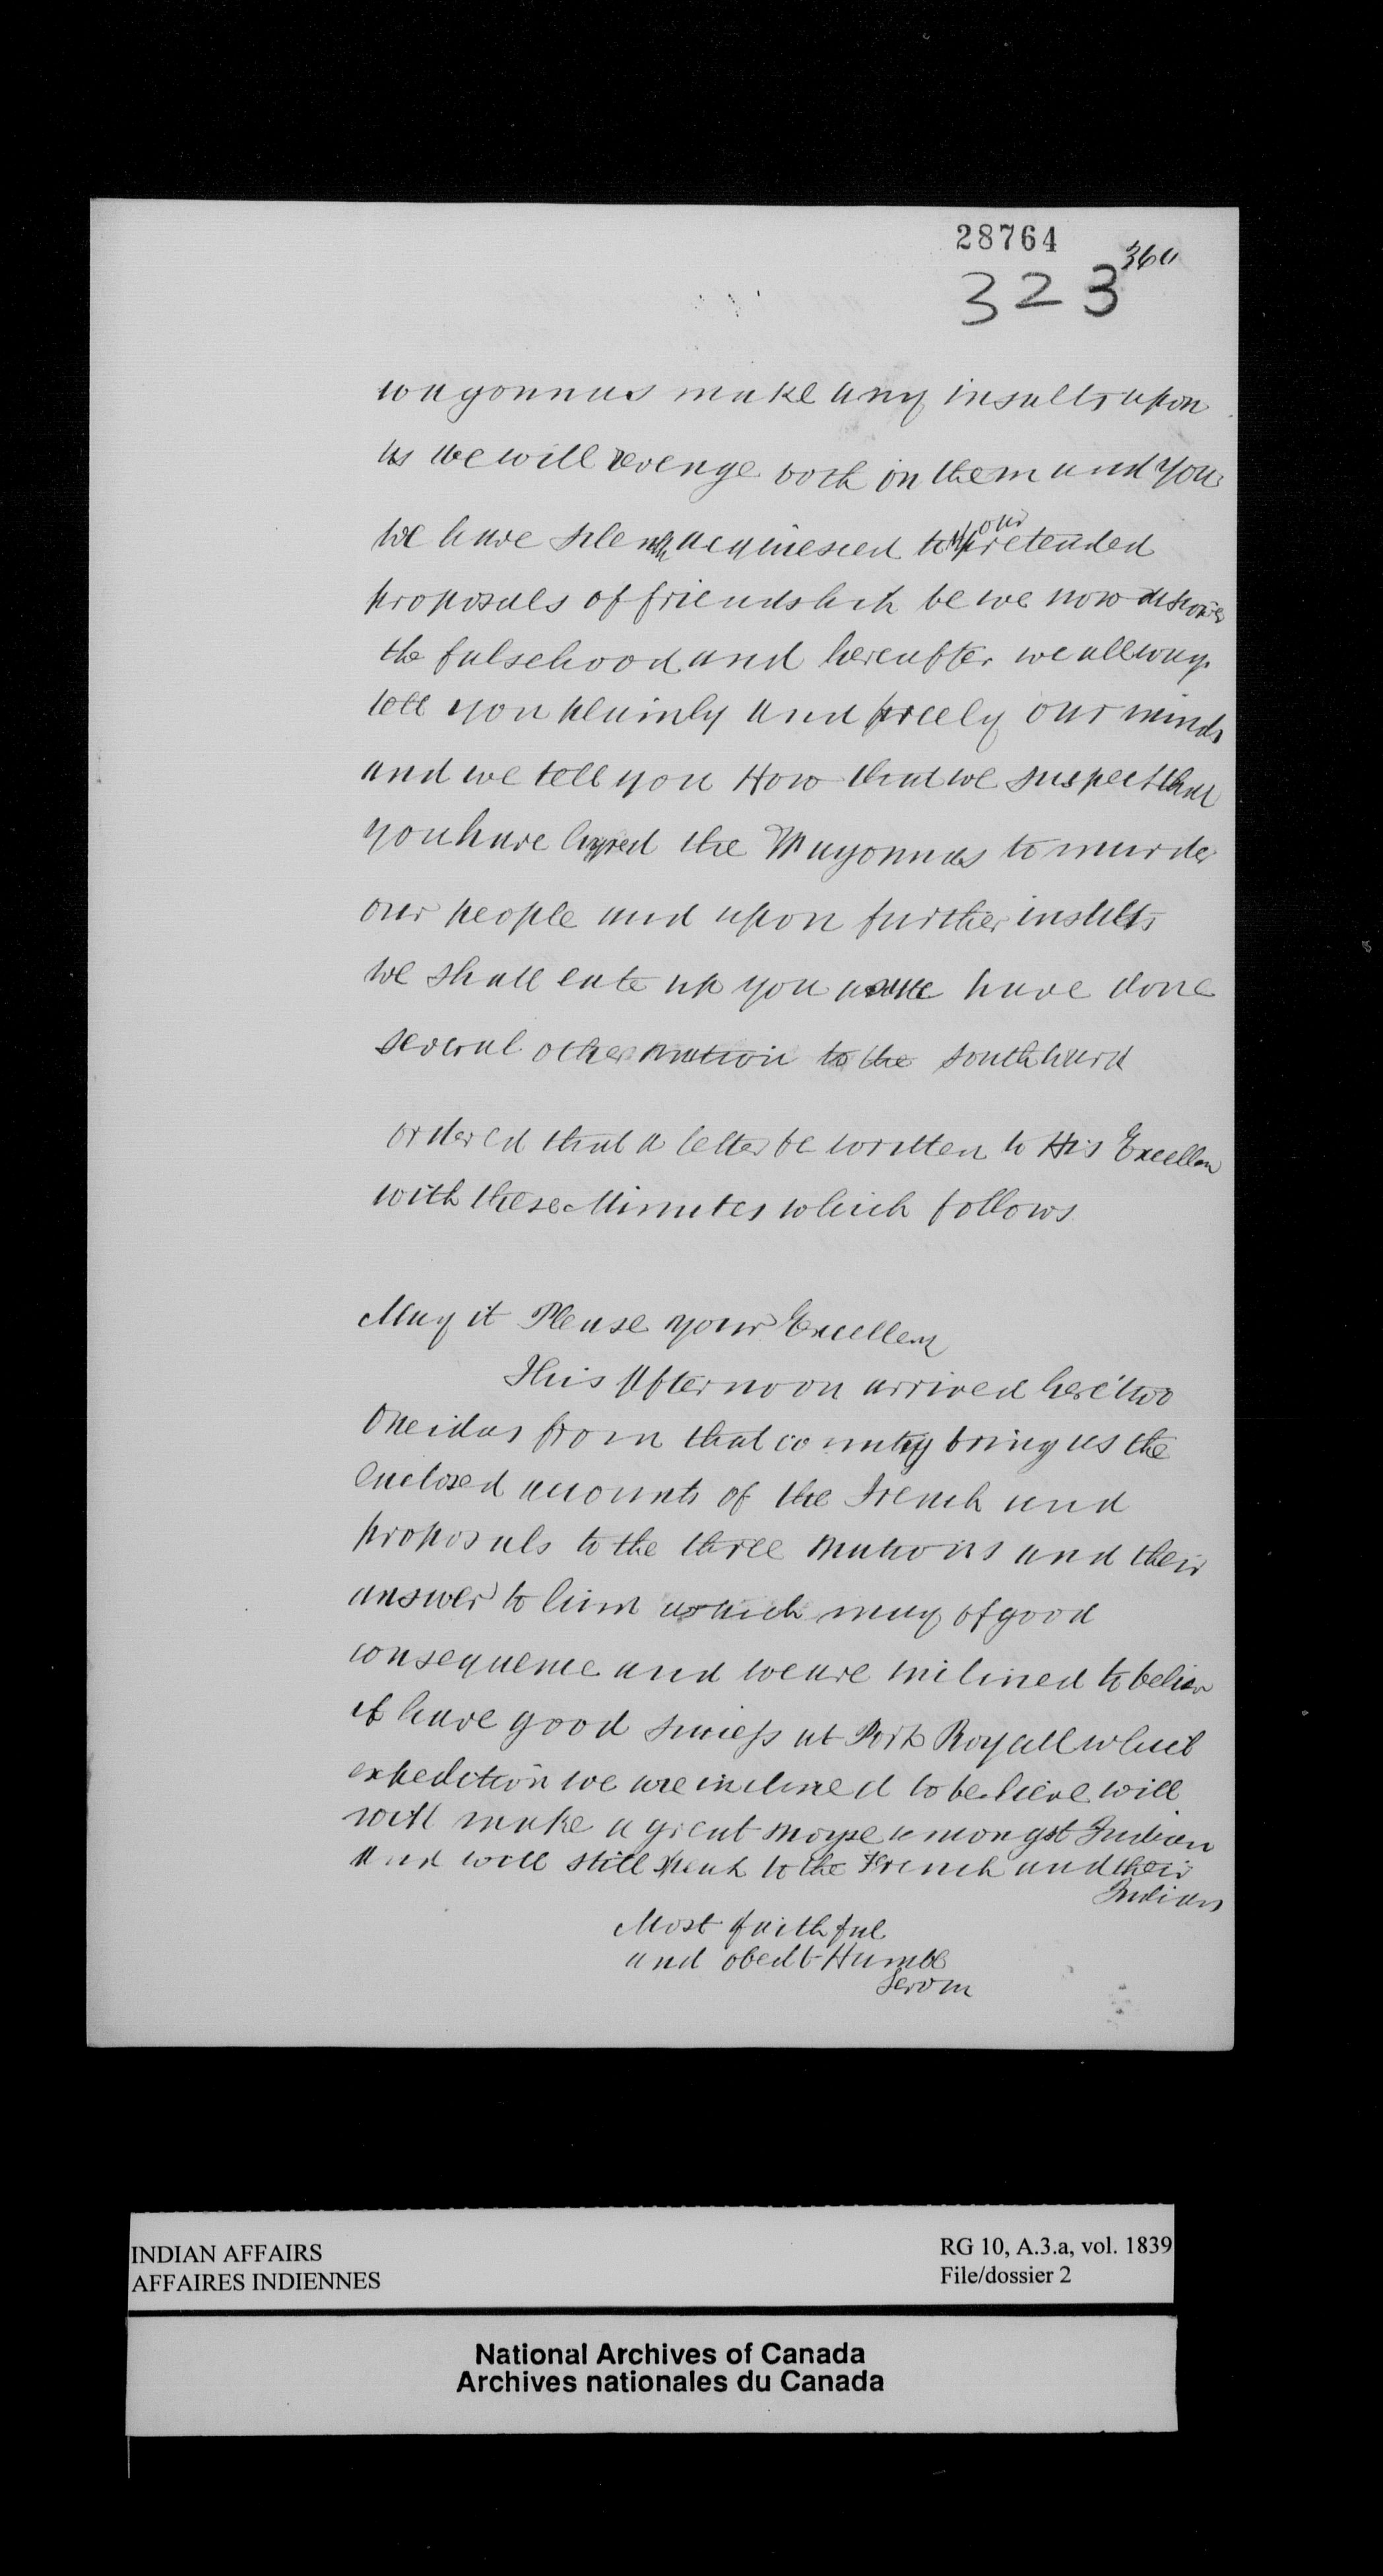 28764
360
323
wagonnas make any insults upon
us we will revenge both on them and you
we have silently acquiesced to your pretended
proposals of friendship be we now discover
the falsehood and hereafter we allways
tell you plainly and freely our minds
and we tell you Now that we suspect that
you have hyred the Wagonnas to murder
our people and upon further insults
we shall eate up you as we have done
several other nation to the southward
ordered that a letter be written to His Excellen
with these Minutes which follows
May it Please your Excellency
This Afternoon arrived here two
Oneidas from that country bring us the
enclosed accounts of the French and
proposals to the three nations and their
answer to him which may of good
consequence and we are inclined to believe
if have good success at Port Royall which
expedition we are inclined to believe will
will make a great noyse amongst Indian
and will still to the French and their
Indians
Most faithful
and obedt Humble
INDIAN AFFAIRS
AFFAIRES INDIENNES
RG 10, A.3.a, vol. 1839
File/dossier 2
National Archives of Canada
Archives nationales du Canada